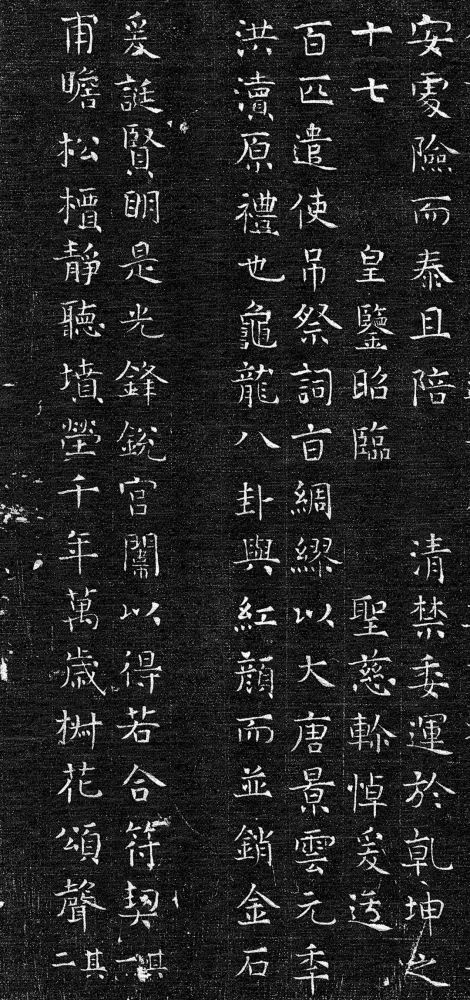 安處險而泰且陪　清禁委運於乾坤之
十七　皇鑒昭臨　聖慈軫悼爰造
百匹遣使吊祭詞旨綢繆以大唐景雲元年
洪瀆原禮也龜龍八卦與紅顏而並銷金石
爰誕賢明是光鋒銳宮闈以得若合符契其一
甫瞻松檟靜聽墳塋千年萬歲椒花頌聲其二